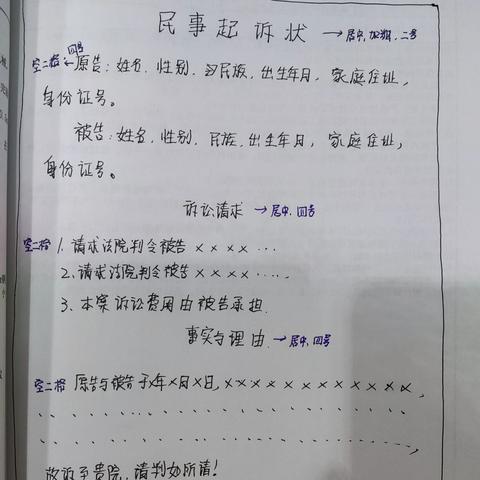 民事起诉状 → 居中,加粗,二号
空二格 四号 原告:姓名,性别,民族,出生年月,家庭住址,
身份证号。
被告:姓名,性别,民族,出生年月,家庭住址,
身份证号。
诉讼请求 → 居中,四号
空二格 1.请求法院判令被告××××...
2.请求法院判令被告××××....
3、本案诉讼费用由被告承担.
事实与理由 → 居中,四号
空二格 原告与被告于×年×月×日,×××××××××××××,
故诉至贵院,请判如所请!